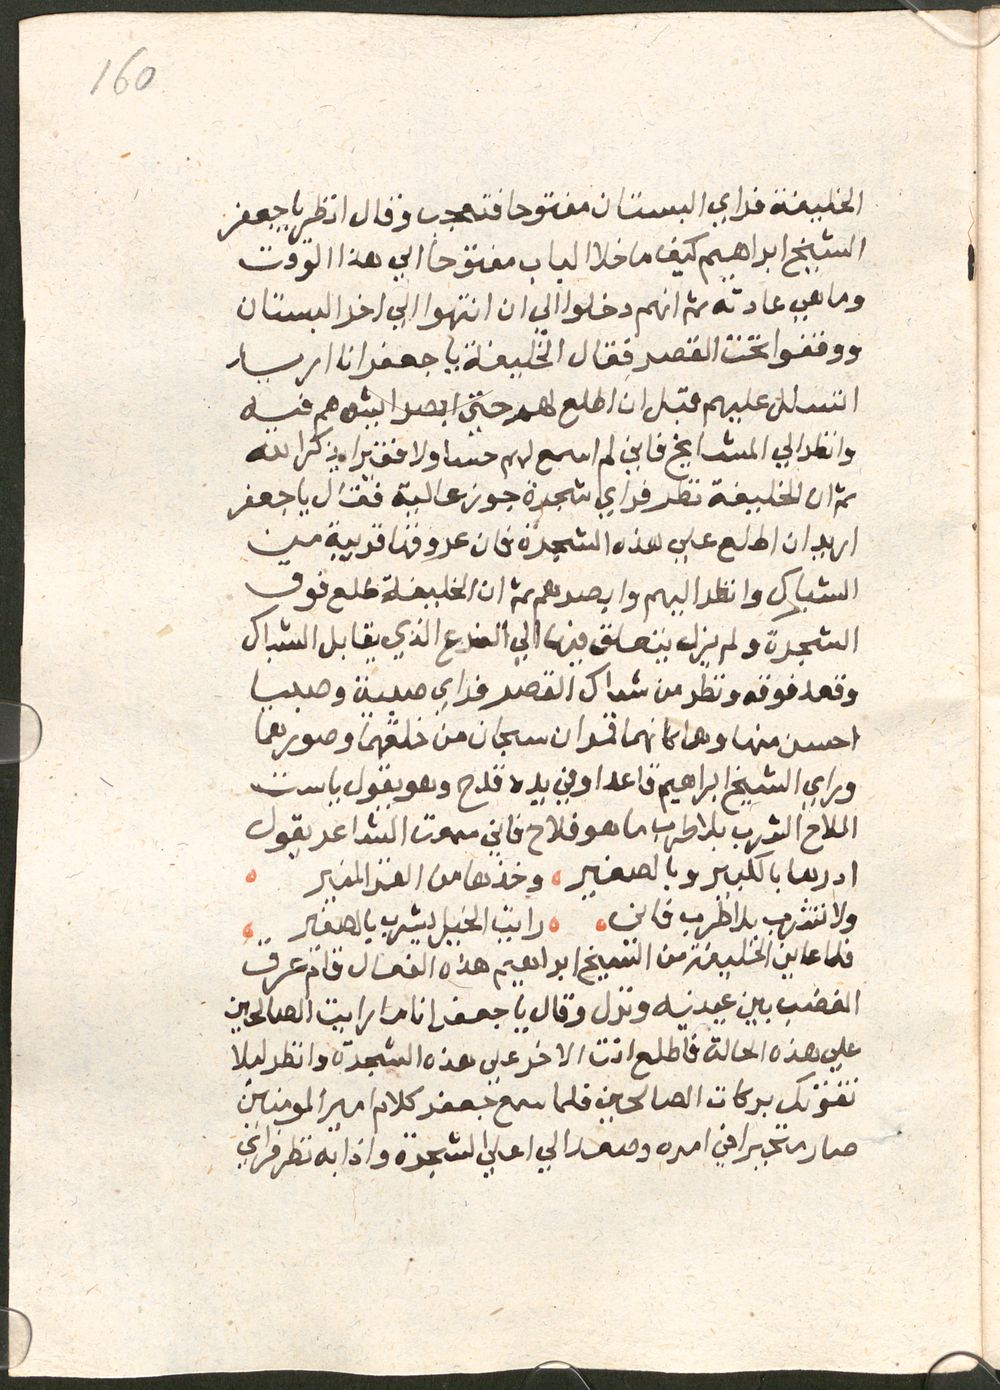 160
الخليفة فراي البستان مفتوحا فتعجب وقال انظر يا جعفر
الشيخ ابراهيم كيف ما خلا الباب مفتوحا الي هذا الوقت
وما هي عادته ثم انهم دخلوا الي ان انتهوا الي اخر البستان
ووقفوا تحت القصر فقال الخليفة يا جعفر انا اريد
اتسلل عليهم قبل ان اطلع لهم حتي ابصر ايش هم فيه
وانظر الي المشايخ فاني لم اسمع لهم حسا ولا فقيرا يذكر الله
ثم ان الخليفة نظر فراي شجرة جوز عالية فقال يا جعفر
اريد ان اطلع علي هذه الشجرة فان عروقها قريبة من
الشباك وانظر اليهم وابصرهم ثم ان الخليفة طلع فوق
الشجرة ولم يزل يتعلق فيها الي الفرع الذي يقابل الشباك
وقعد فوقه ونظر من شباك القصر فراي صبية وصبيا
احسن منها وهما كانهما قمران سبحان من خلقهما وصورهما
وراي الشيخ ابراهيم قاعدا وفي يده قدح وهو يقول يا ست
الملاح الشرب بلا طرب ما هو فلاح فاني سمعت الشاعر يقول
ادرها بالكبير وبالصغير وخذها من القمر المنير
ولا تشرب بلا طرب فاني رايت الخيل يشرب بالصفير
فلما عاين الخليفة من الشيخ ابراهيم هذه الفعال قام عرق
الغضب بين عينيه ونزل وقال يا جعفر انا ما رايت الصالحين
علي هذه الحالة فاطلع انت الاخر علي هذه الشجرة وانظر ليلا
تفوتك بركات الصالحين فلما سمع جعفر كلام امير المومنين
صار متحيرا في امره وصعد الي اعلي الشجرة واذا به نظر فراي